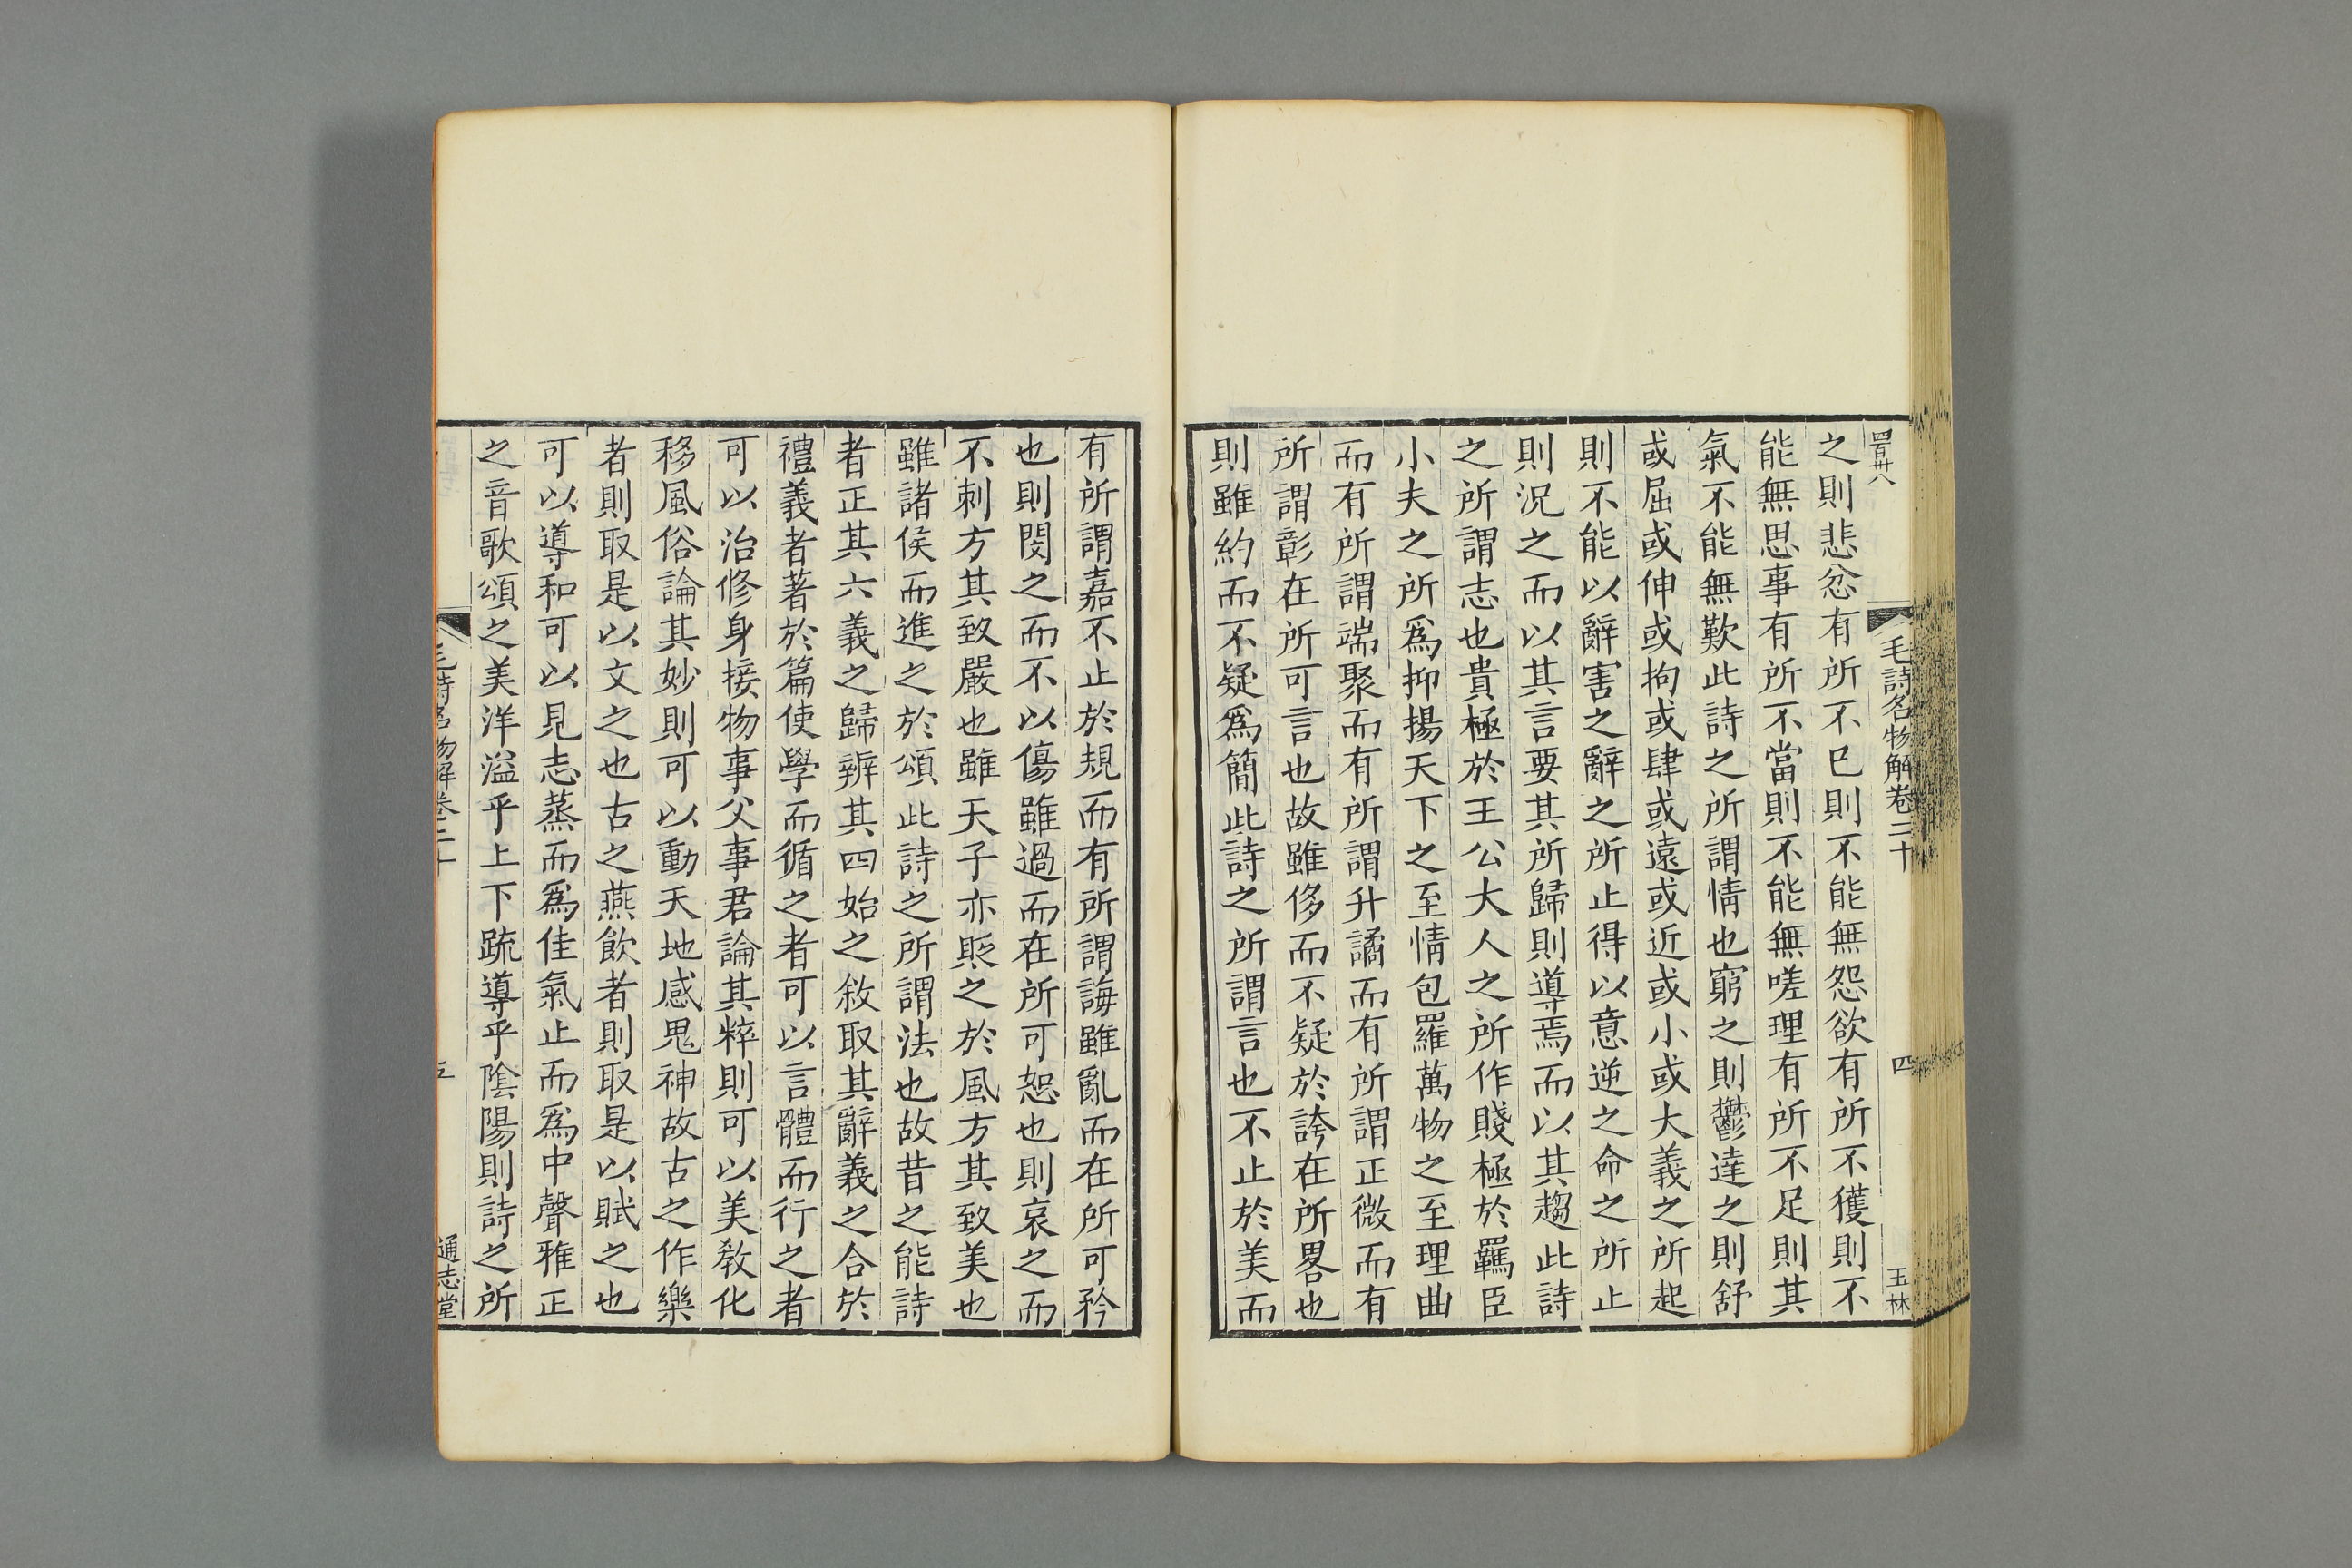 毛詩名物解卷二十
四
玉林
之則悲忿有所不已則不能無怨欲有所不獲則不
能無思事有所不當則不能無嗟理有所不足則其
氣不能無歎此詩之所謂情也窮之則鬱達之則舒
或屈或伸或拘或肆或遠或近或小或大義之所起
則不能以辭害之辭之所止得以意逆之命之所止
則況之而以其言要其所歸則導焉而以其趨此詩
之所謂志也貴極於王公大人之所作賤極於羈臣
小夫之所爲抑揚天下之至情包羅萬物之至理曲
而有所謂端聚而有所謂升譎而有所謂正微而有
所謂彰在所可言也故雖侈而不疑於誇在所畧也
則雖約而不疑爲簡此詩之所謂言也不止於美而
有所謂嘉不止於規而有所謂誨雖亂而在所可矜
也則閔之而不以傷雖過而在所可恕也則哀之而
不刺方其致嚴也雖天子亦貶之於風方其致美也
雖諸侯而進之於頌此詩之所謂法也故昔之能詩
者正其六義之歸辨其四始之敘取其辭義之合於
禮義者著於篇使學而循之者可以言體而行之者
可以治修身接物事父事君論其粹則可以美教化
移風俗論其妙則可以動天地感鬼神故古之作樂
者則取是以文之也古之燕飲者則取是以賦之也
可以導和可以見志蒸而爲佳氣止而爲中聲雅正
之音歌頌之美洋溢乎上下疏導乎陰陽則詩之所
毛詩名物解卷二十
五
通志堂